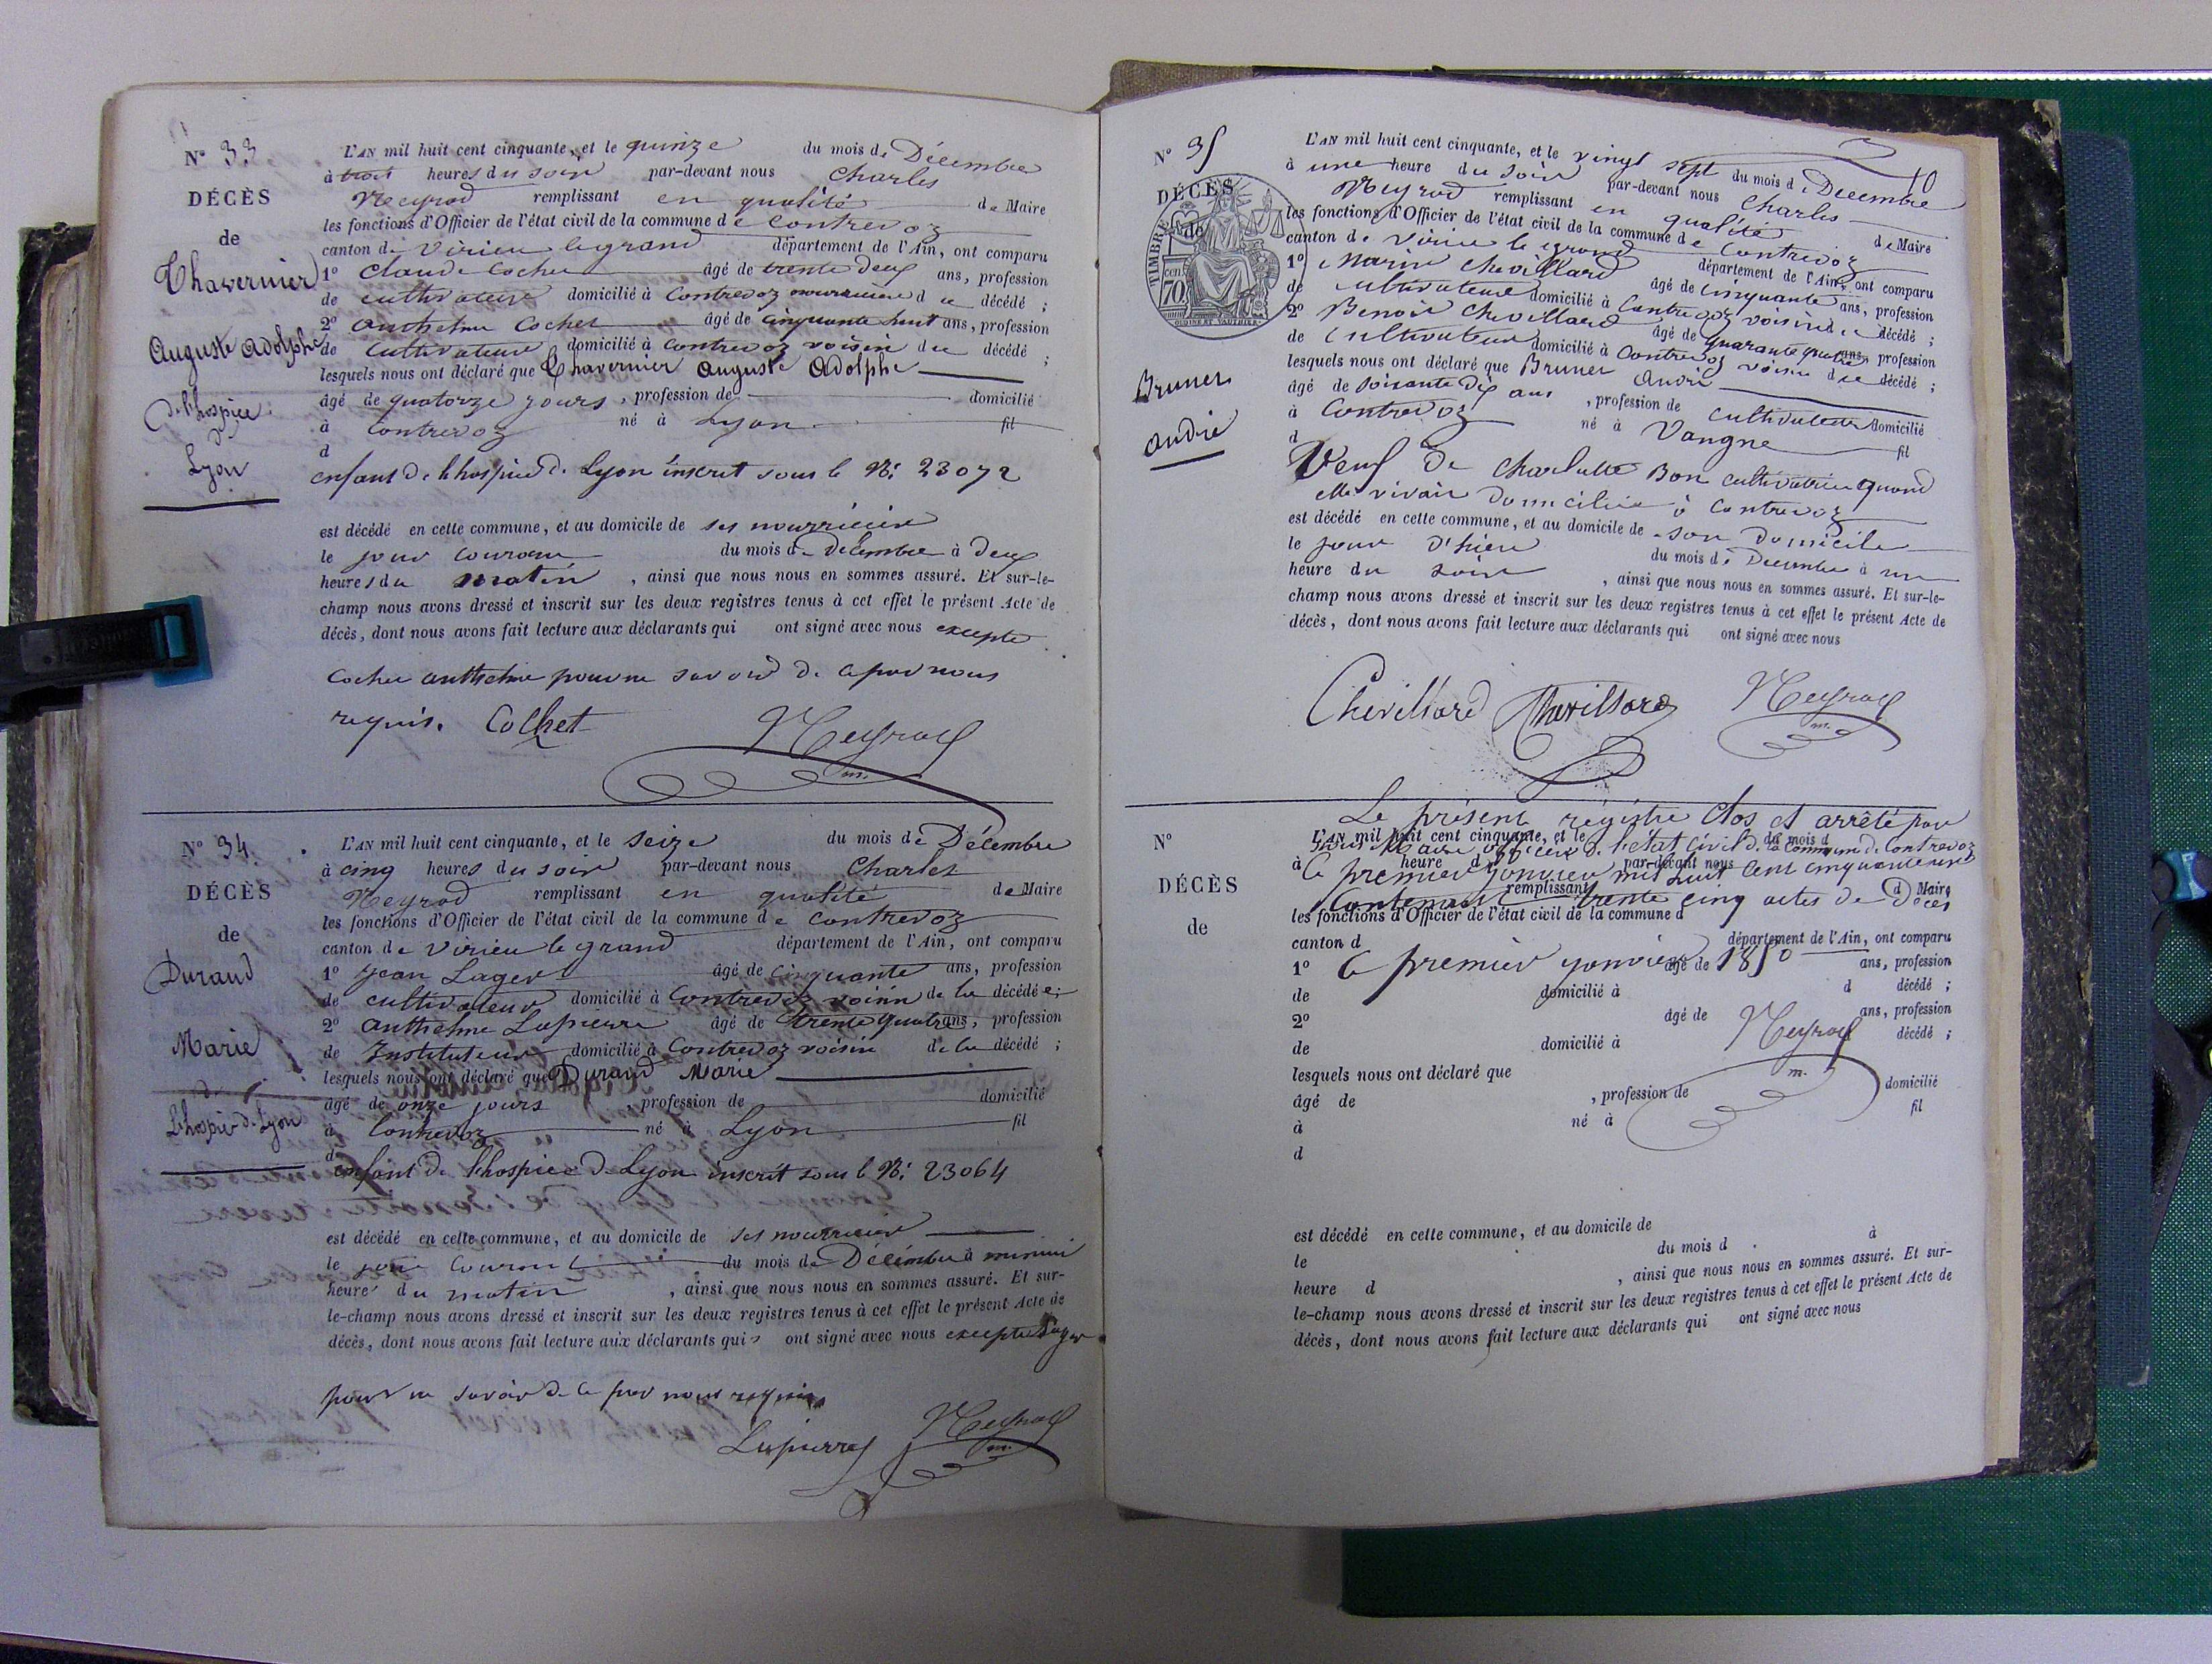 N° 33
DÉCÈS
de
Thavernier
Auguste Adolphe
de l'hospice
de
Lyon
L'AN mil huit cent cinquante, et le quinze du mois de Décembre
à trois heures du soir par-devant nous Charles
Neyrod remplissant en qualité de Maire
les fonctions d'Officier de l'état civil de la commune de Contrevoz
canton de Virieu le grand département de l'Ain, ont comparu
1° Claude Cochet âgé de trente deux ans, profession
de cultivateur domicilié à Contrevoz nourricier du décédé ;
2° Anthelme Cochet âgé de cinquante huit ans, profession
de Cultivateur domicilié à Contrevoz voisin du décédé ;
lesquels nous ont déclaré que Thavernier Auguste Adolphe
âgé de quatorze jours, profession de domicilié
à Contrevoz né à Lyon fil
d
enfant de l'hospice de Lyon inscrit sous le N°: 23072
est décédé en cette commune, et au domicile de ses nourricier
le jour courant du mois de Décembre à deux
heures du matin, ainsi que nous nous en sommes assuré. Et sur-le-
champ nous avons dressé et inscrit sur les deux registres tenus à cet effet le présent Acte de
décès, dont nous avons fait lecture aux déclarants qui ont signé avec nous excepté
Cochet anthelme pour ne savoir de ce par nous
requis. Cochet Neyrod
m.
N° 34.
DÉCÈS
de
Durand
Marie
de
l'hospice de Lyon
L'AN mil huit cent cinquante, et le seize du mois de Décembre
à cinq heures du soir par-devant nous Charles
Neyrod remplissant en qualité de Maire
les fonctions d'Officier de l'état civil de la commune de Contrevoz
canton de Virieu le grand département de l'Ain, ont comparu
1° Jean Lager âgé de Cinquante ans, profession
de cultivateur domicilié à Contrevoz voisin de la décédée ;
2° Anthelme Lapierre âgé de trente quatre ans, profession
de Instituteur domicilié à Contrevoz voisin de la décédé ;
lesquels nous ont déclaré que Durand Marie
âgé de onze jours, profession de domicilié
à Contrevoz né à Lyon fil
d
enfant de l'hospice de Lyon inscrit sous le N°: 23064
est décédé en cette commune, et au domicile de ses nourricier
le jour Courant du mois de Décembre à
heure du matin, ainsi que nous nous en sommes assuré. Et sur-
le-champ nous avons dressé et inscrit sur les deux registres tenus à cet effet le présent Acte de
décès, dont nous avons fait lecture aux déclarants qui ont signé avec nous excepté Lager
pour ne savoir de ce par nous requis
Lapierre Neyrod
m.
N° 35
DÉCÈS
de
TIMBRE
70 cen
Brunet
andré
10
L'AN mil huit cent cinquante, et le vingt sept du mois de Décembre
à une heure du soir par-devant nous Charles
Neyrod remplissant en qualité de Maire
les fonctions d'Officier de l'état civil de la commune de Contrevoz
canton de Virieu le grand département de l'Ain, ont comparu
1° Marin Chevillard âgé de cinquante ans, profession
de Cultivateur domicilié à Contrevoz voisin du décédé ;
2° Benoit Chevillard âgé de quarante quatre ans, profession
de Cultivateur domicilié à Contrevoz voisin du décédé ;
lesquels nous ont déclaré que Brunet André
âgé de soixante dix ans, profession de cultivateur domicilié
à Contrevoz né à Vongne fil
d
Veuf de Charlotte Bon cultivatrice quand
elle vivait domiciliée à Contrevoz
est décédé en cette commune, et au domicile de son domicile
le jour d'hier du mois de Décembre à une
heure du soir, ainsi que nous nous en sommes assuré. Et sur-le-
champ nous avons dressé et inscrit sur les deux registres tenus à cet effet le présent Acte de
décès, dont nous avons fait lecture aux déclarants qui ont signé avec nous
Chevillard Chevillard Neyrod
m.
Le présent régistre Clos et arrêté par
nous Maire officier de l'état civil de la Commune de Contrevoz
le premier Janvier mil huit cent cinquante un
Contenant trente cinq actes de Décès
le premier Janvier 1850
Neyrod
m.
N°
DÉCÈS
de
L'AN mil huit cent cinquante, et le du mois d
à heure d par-devant nous
remplissant d Maire
les fonctions d'Officier de l'état civil de la commune d
canton d département de l'Ain, ont comparu
1° âgé de ans, profession
de domicilié à d décédé ;
2° âgé de ans, profession
de domicilié à décédé ;
lesquels nous ont déclaré que
âgé de , profession de domicilié
à né à fil
d
est décédé en cette commune, et au domicile de
le du mois d à
heure d , ainsi que nous nous en sommes assuré. Et sur-
le-champ nous avons dressé et inscrit sur les deux registres tenus à cet effet le présent Acte de
décès, dont nous avons fait lecture aux déclarants qui ont signé avec nous